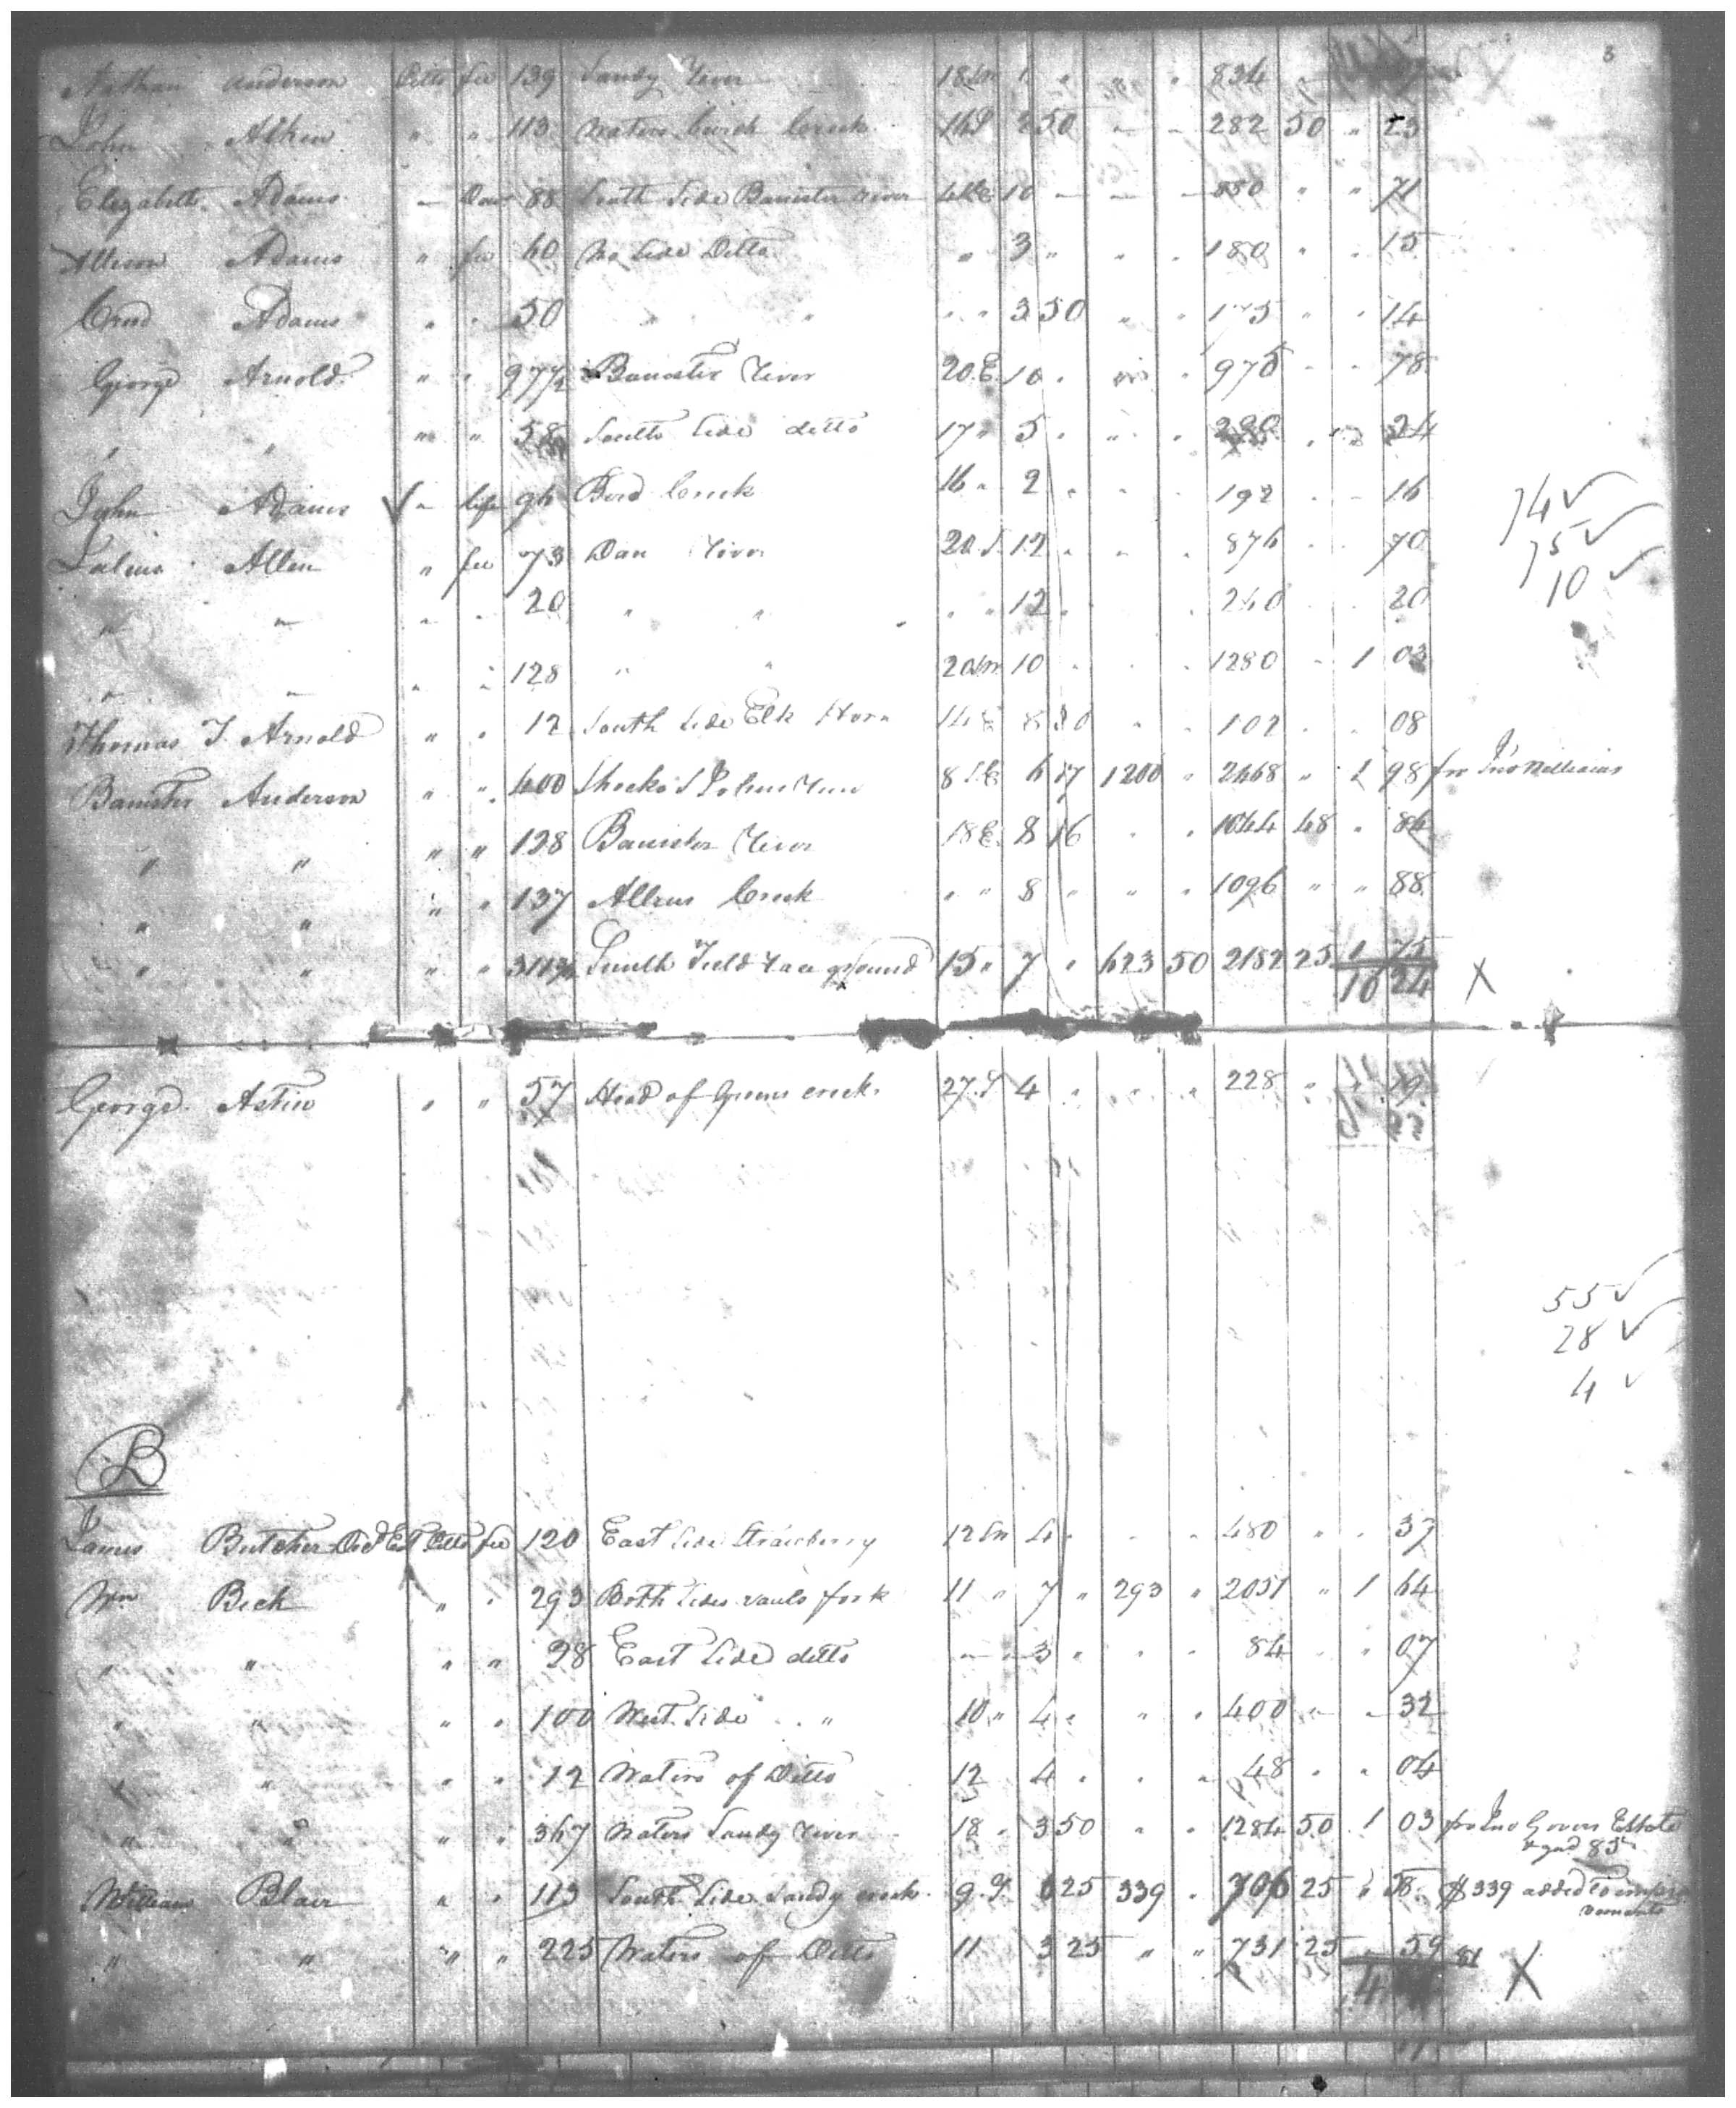 3
Nathan Anderson Pitts fee 139 Sandy River 18 SW 6 " " " 834 "
John Aiken " " 113 Waters Birch Creek 16 S 2 50 - - 282 50 " 23
Elizabeth Adams - Dow 88 South Side Banister River 10 - - - 880 " " 71
Allison Adams " fee 60 No Side Ditto " 3 " " " 180 " " 15
Adams " " 50 " " " " 3 50 " " 175 " " 14
George Arnold " " 97 1/2 Banister River 20 E 10 " " " 975 " " 78
" " " " 58 South Side ditto 17 " 5 " " " 290 " " 24
John Adams ✓ " life 96 Bird Creek 16 " 2 " " " 192 " " 16
74 ✓
Allen " fee 73 Dan River 20 S 12 " " " 876 " " 70
75 ✓
" " " " 20 " " " " 12 " " 240 " " 20
10 ✓
" " " " 128 " " 20 SW 10 " " " 1280 " 1 03
Thomas T. Arnold " " 12 South Side Elk Horn 14 E 8 50 " " 102 " " 08
Banister Anderson " " 400 8 SE 6 17 1200 " 2468 " 1 98 fr Jno Williams
" " " " 128 Banister River 18 E 8 16 " " 1044 48 " 84
" " " " 137 Allens Creek " " 8 " " " 1096 " " 88
" " " " 311 3/4 Smith Field Race ground 15 " 7 " 623 50 2182 25 1 75
16 24 X
George Astin " " 57 Head of Greens creek 27 S 4 " " " 228 " " 19
55 ✓
28 ✓
4 ✓
B
James Butcher Decd Est Pitts fee 120 East Side Strawberry 12 SW 4 " " " 480 " " 39
Wm Beck " " 293 Both Sides fork 11 " 7 " 293 " 2051 " 1 64
" " " " 28 East Side ditto " " 3 " " " 84 " " 07
" " " " 100 West Side " 10 " 4 " " " 400 " " 32
" " " " 12 Waters of Ditto 12 4 " " " 48 " " 04
" " " " 367 Waters Sandy River 18 " 3 50 " " 1284 50 1 03 fr Jno Estate
William Blair " " 113 South Side Sandy creek 9 25 339 " 706 25 " $339 added to improvements
" " " " 225 Waters of Ditto 11 3 25 " " 731 25 " 59
4 81 X